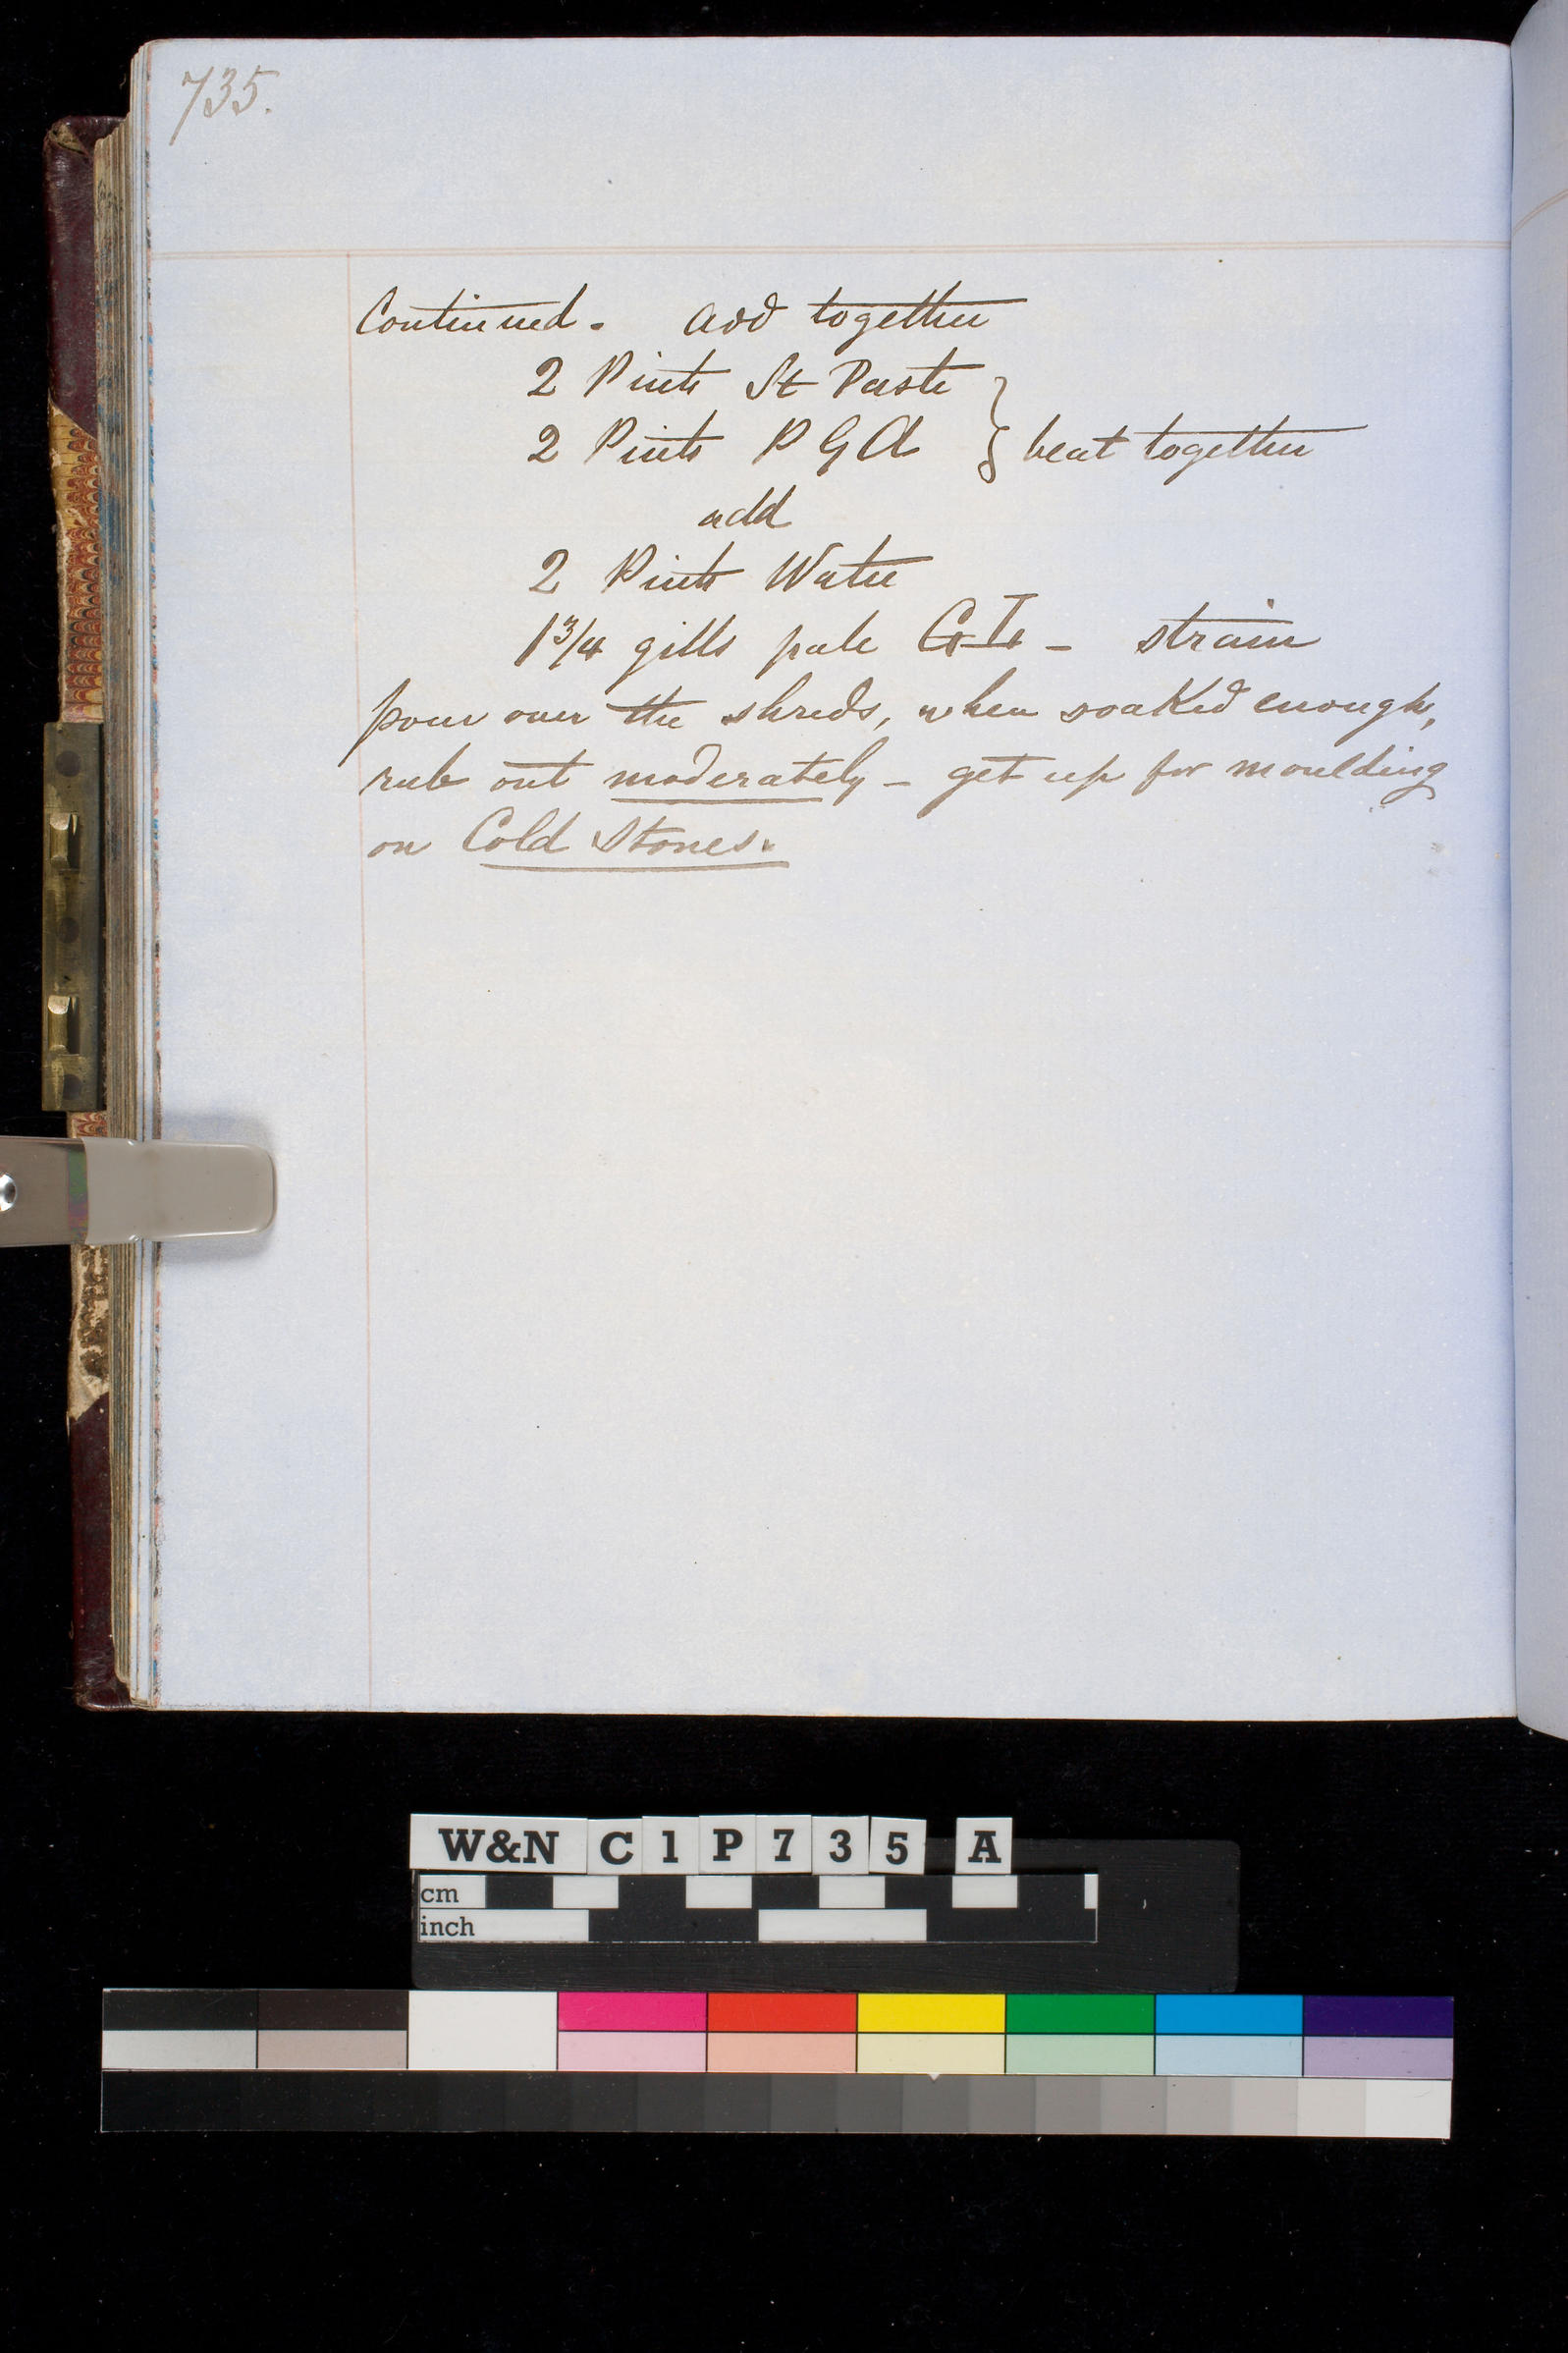 735.
Continued. add together
2 Pints St Paste
2 Pints P G A } beat together
add
2 Pints Water
1 3/4 gills pale - strain
pour over the shreds, when soaked enough,
rub out moderately - get up for moulding
on Cold Stones.
W&N C1P735 A
cm
inch